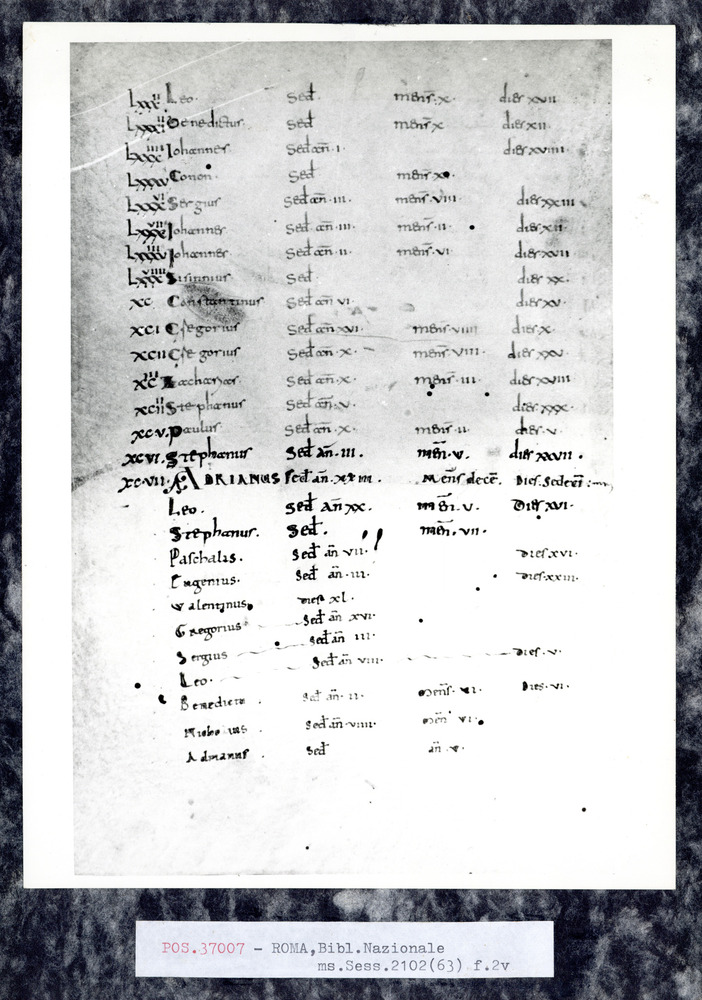 Leo. Sed mens. x. dies xvii
Benedictus Sed mens x dies xii
Iohannes Sed an. i. dies xviiii
Lxxxv Conon Sed mens. x
Sergius Sed an. iii. mens. viii dies xxiii
Iohannes Sed an. iii. mens. ii. dies xii
Iohannes Sed an. ii mens. vi. dies xvii
Sisinnius Sed. dies xx.
xc Constantinus Sed an vi. dies xv.
xci Gregorius Sed an xvi. mens. viiii dies x.
xcii Gregorius Sed an. x. mens. viii. dies xxv.
Zacharias Sed an. x. mens. iii. dies xviii
Stephanus Sed an. v. dies xxx.
xcv. Paulus Sed an. x. mens. ii dies. v.
xcvi. Stephanus Sed an. iii. men. v. dies xxvii.
xcvii. ADRIANUS sed an. xxiii. Mens dece. Dies.
Leo. Sed an xx. men. v. Dies xvi.
Stephanus. Sed. men. vii.
Paschalis. Sed an vii. Dies xvi.
Eugenius. Sed an. iii. Dies. xxiii.
Valentinus. Dies xl.
Gregorius Sed an xvi.
Sergius sed an iii. Dies. v.
Leo. Sed an viii. Dies. vi.
Benedictus. Sed an. ii. mens. vi.
Nicholaus Sed an. viiii. men vi.
Adrianus. Sed an. v.
POS.37007 - ROMA,Bibl.Nazionale
ms.Sess.2102(63) f.2v